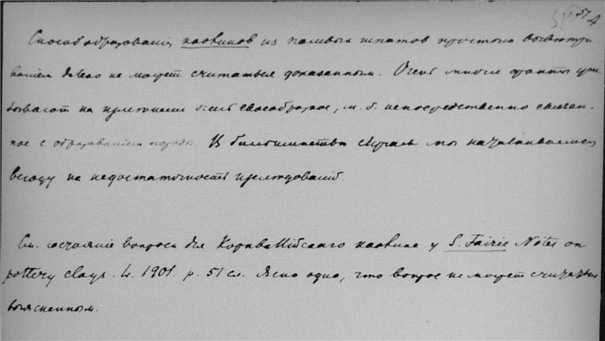 Способ образования каолинов из полевых шпатов простым выветри
ванием далеко не может считаться доказанным. Очень многие факты ука
зывают на изменение очень своеобразное, м. б. непосредственно связан
ное с образованием породы. В большинстве случаев мы наталкиваемся
всюду на недостаточность исследований.
См. состояние вопроса для Корнваллийского каолина у S. Fairie Notes on
pottery clays. L. 1901. p. 51 сл. Ясно одно, что вопрос не может считаться
выясненным.